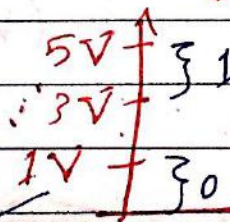 5V } 1
∴ 3V
1V } 0